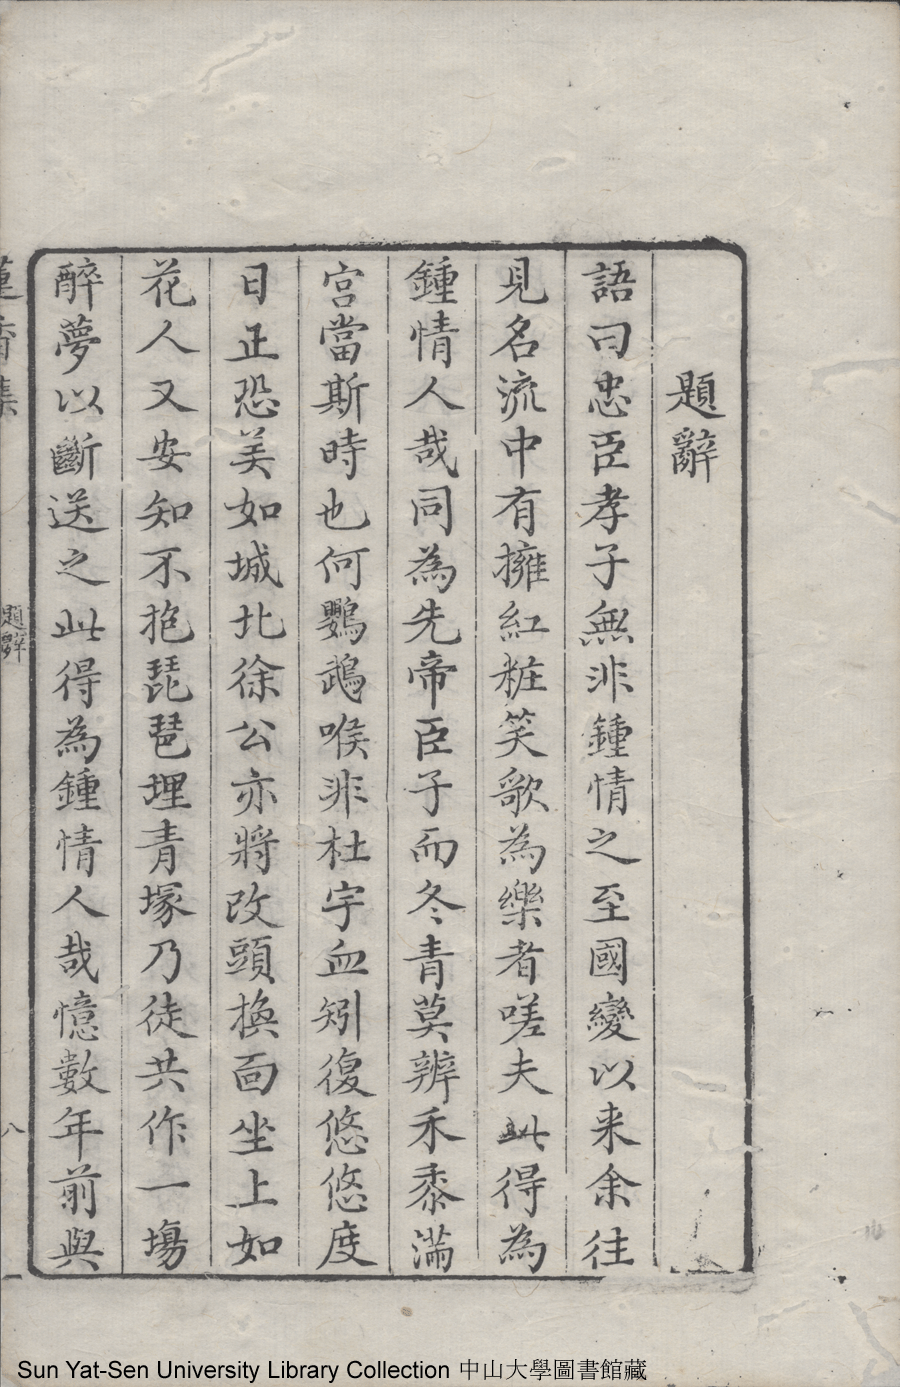 題辭
語曰忠臣孝子無非鍾情之至國變以来余往
見名流中有擁紅粧笑歌為樂者嗟夫此得為
鍾情人哉同為先帝臣子而冬青莫辨禾黍滿
宮當斯時也何鸚鵡喉非杜宇血矧復悠悠度
日正恐美如城北徐公亦將改頭換面坐上如
花人又安知不抱琵琶埋青塚乃徒共作一塲
醉夢以斷送之此得為鍾情人哉憶數年前與
集
題辭
八
Sun Yat-Sen University Library Collection 中山大學圖書館藏